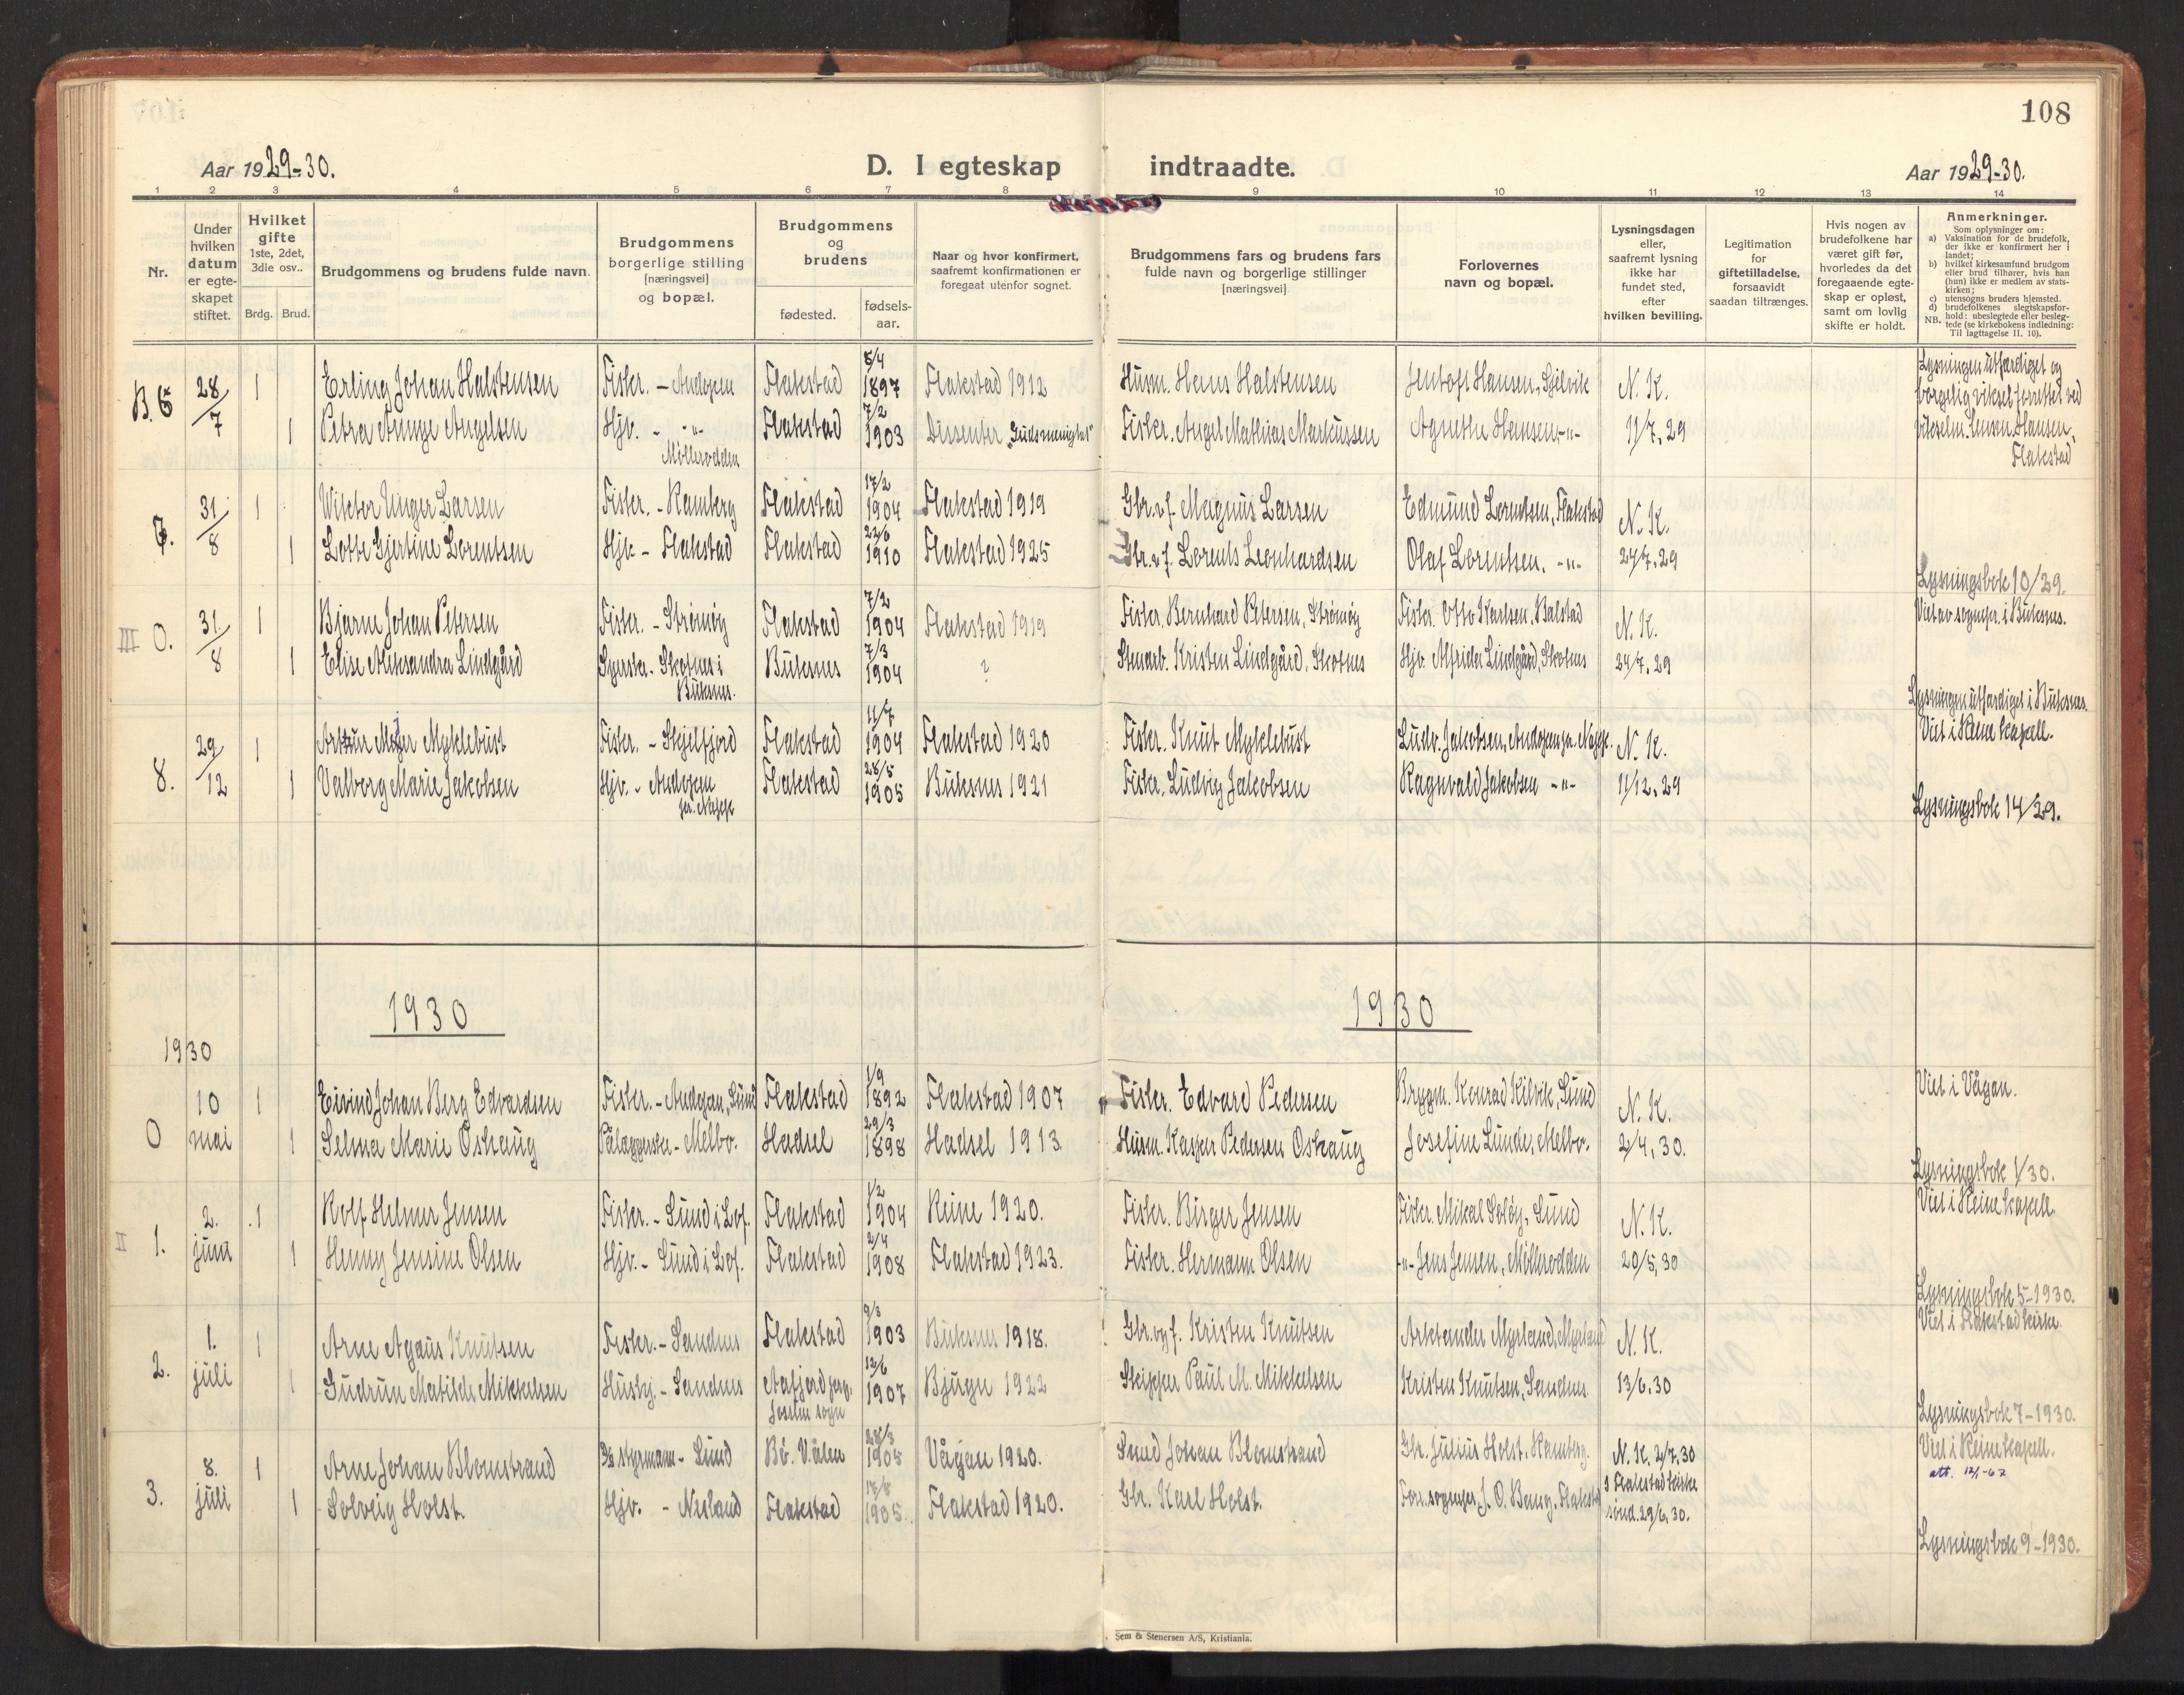 108
Aar 1929-30.
D. I egteskap indtraadte.
Aar 1929-30.
1 2 3 4 5 6 7 8 9 10 11 12 13 14
Nr.
Under hvilken datum er egteskapet stiftet.
Hvilket gifte 1ste, 2det, 3die osv..
Brdg. Brud.
Brudgommens og brudens fulde navn.
Brudgommens borgerlige stilling [næringsvei] og bopæl.
Brudgommens og brudens
fødested.
fødselsaar.
Naar og hvor konfirmert, saafremt konfirmationen er foregaat utenfor sognet.
Brudgommens fars og brudens fars fulde navn og borgerlige stillinger [næringsvei]
Forlovernes navn og bopæl.
Lysningsdagen eller, saafremt lysning ikke har fundet sted, efter hvilken bevilling.
Legitimation for giftetilladelse, forsaavidt saadan tiltrænges.
Hvis nogen av brudefolkene har været gift før, hvorledes da det foregaaende egteskap er opløst, samt om lovlig skifte er holdt.
Anmerkninger.
Som oplysninger om:
a) Vaksination for de brudefolk, der ikke er konfirmert her i landet;
b) hvilket kirkesamfund brudgom eller brud tilhører, hvis han (hun) ikke er medlem av statskirken;
c) utensogns bruders hjemsted.
d) brudefolkenes slegtskapsforhold: ubeslegtede eller beslegtede (se kirkebokens indledning: NB. Til iagttagelse II. 10).
B. 6 28/7 1 Erling Johan Halstensen Fisker. - Andopen Flakstad 5/4 1897 Flakstad 1912 Husm. Hans Halstensen Jentoft Hansen, Sjilvik N. K. Lysningen utfærdiget og borgerlig viksel forrettet ved
1 Petra Aunge Angelsen Hjv. - -"- Møllerodden Flakstad 7/2 1903 Dissenter "Gudsmenighet" Fisker. Angel Mathias Markussen Agnethe Hansen -"- 11/7, 29 vikselm. Jensen Hansen, Flakstad
7. 31/8 1 Wiktor Unger Larsen Fisker. - Ramberg Flakstad 17/2 1904 Flakstad 1919 Gbr. o f. Magnus Larsen Edmund Lorentsen, Flakstad N. K.
1 Lotte Gjertine Lorentsen Hjv. - Flakstad Flakstad 22/6 1910 Flakstad 1925 Gbr. o f. Lorents Leonhardsen Olaf Lorentsen. -"- 24/7, 29
Lysningsbok 10/29.
III 0. 31/8 1 Bjarne Johan Petersen Fisker. - Strømøy Flakstad 7/2 1904 Flakstad 1919 Fisker. Bernhard Petersen, Strømøy Fisker. Otto Karlsen, Balstad N. K. Viet av sognepr. i Buksnes.
1 Elise Aleksandra Lindgård Syerske. Skotnes i Buksnes. Buksnes 7/3 1904 ? Stenarb. Kristen Lindgård, Skotnes Hjv. Alfrida Lindgård, Skotnes 24/7, 29
Lysningen utfærdiget i Buksnes.
8. 29/12 1 Artur Meyer Myklebust Fisker. - Skjelfjord Flakstad 11/7 1904 Flakstad 1920 Fisker. Knut Myklebust Ludv. Jakobsen, Andopen pr. Napp. N. K. Viet i Reine kapell.
1 Valborg Marie Jakobsen Hjv. - Andopen pr. Napp Flakstad 28/5 1905 Buksnes 1921 Fisker. Ludvig Jakobsen Ragnvald Jakobsen -"- 11/12, 29
Lysningsbok 14/29.
1930 1930
1930
0 10 mai 1 Eivind Johan Berg Edvardsen Fisker. - Andopen, Sund Flakstad 1/9 1892 Flakstad 1907 Fisker. Edvard Pedersen Brygm. Konrad Kilvik, Sund N. K. Viet i Vågan.
1 Selma Marie Oskaug Pålæggerske - Melbo. Hadsel 29/3 1898 Hadsel 1913 Husm. Kasper Pedersen Oskaug Josefine Lunde, Melbo. 2/4, 30.
Lysningsbok 1/30.
II 1. 2. juni 1 Rolf Helmer Jensen Fisker. - Sund i Lof. Flakstad 1/2 1904 Reine 1920. Fisker. Birger Jensen Fisker Mikal Soløy, Sund N. K. Viet i Reine kapell
1 Henny Jensine Olsen Hjv. - Sund i Lof. Flakstad 2/4 1908 Flakstad 1923. Fisker. Hermann Olsen -"- Jens Jensen, Møllerodden 20/5, 30
Lysningsbok 5-1930.
2. 1. juli 1 Arne Agaus Knutsen Fisker. - Sandnes Flakstad 9/3 1903 Buksnes 1918. Gbr. og f. Kristen Knutsen Arktander Myrland, Myrland N. K. Viet i Flakstad kirke
1 Gudrun Matilde Mikkelsen Hushj. - Sandnes Aafjord prgj. Jossund sogn 12/6 1907 Bjugn 1922 Skipper Paul M. Mikkelsen Kristen Knutsen, Sandnes. 13/6, 30
Lysningsbok 7-1930.
3. 8. juli 1 Arne Johan Blomstrand styrmann - Sund Bø. V.ålen 28/3 1905 Vågan 1920. Smed Johan Blomstrand Gbr. Julius Holst. Ramberg. N. K. 2/7, 30 Viet i Reine kapell.
att. 12/1-62
1 Solveig Holst. Hjv. - Nusland Flakstad 1905. Flakstad 1920. Gbr. Karl Holst. Forr. sogneprs. J. O. Bang, Flakstad I Flakstad kirke sønd. 29/6, 30.
Lysningsbok 9-1930.
Sem & Stenersen A/S, Kristiania.